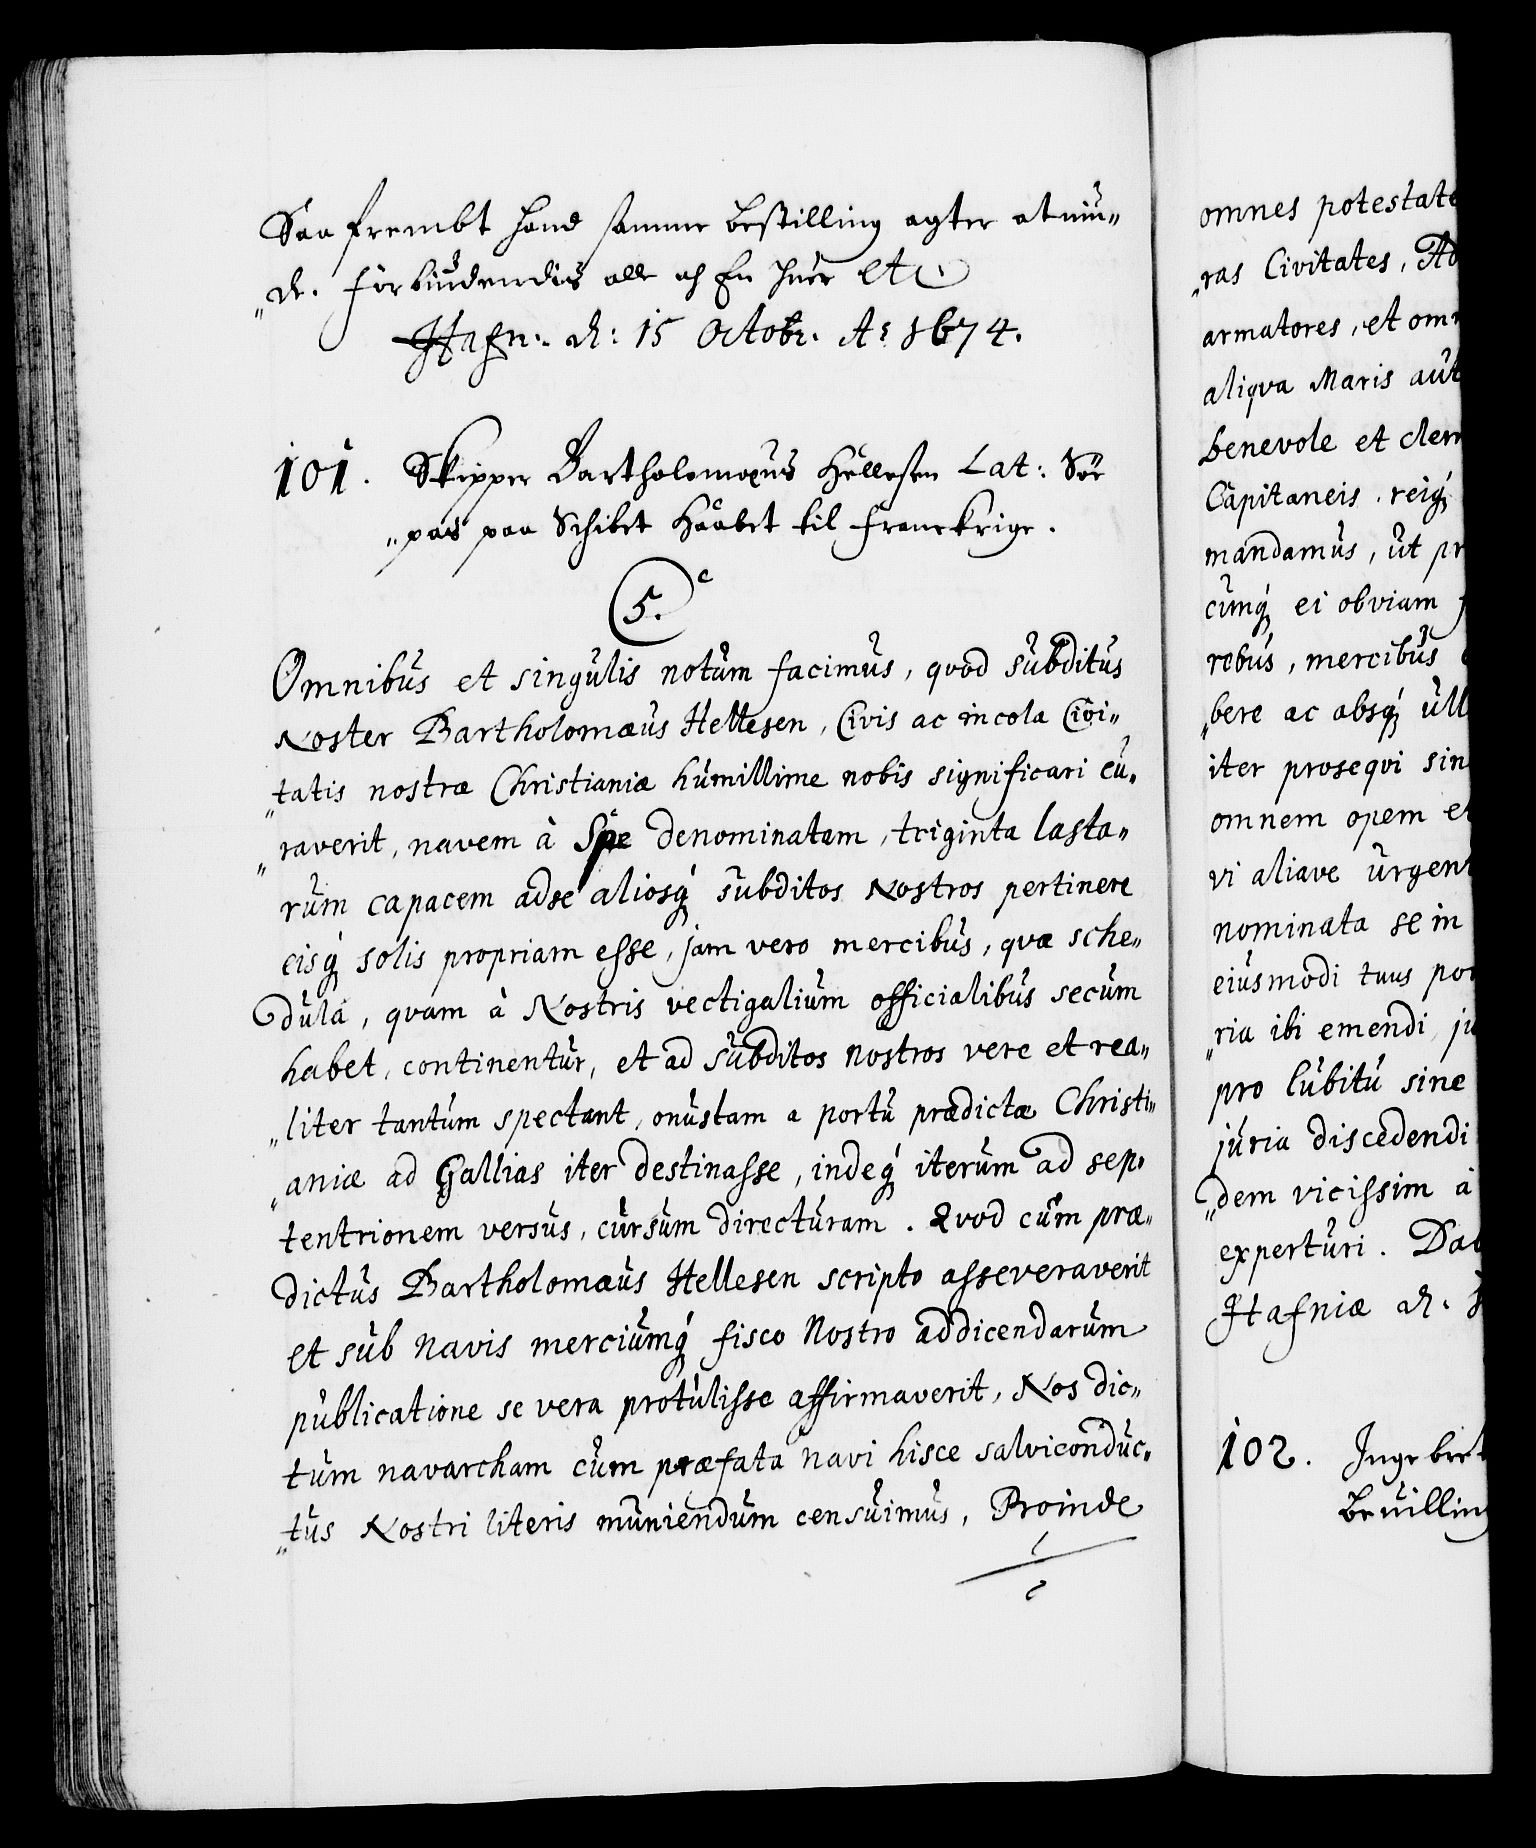 Saa frembt hand samme bestilling agter at niu„
„de. forbiudendis alle och En huer etc
Hafn: d: 15 Octobr. Aº 1674.
101. Skipper Bartholomæus Hellesen Lat: Sør
„pas paa Schibet Haabet til Franckrige.
C 5.
Omnibus et singulis notum facimus, qvod subditus
Noster Bartholomæus Hellesen, Civis ac incola Civi„
„tatis nostræ Christianiæ humillime nobis significari cu„
„raverit, navem à Spe denominatam, triginta lasta„
rum capacem ad se aliosq́ subditos Nostros pertinere
eisq́ solis propriam esse, jam vero mercibus, qvæ sche„
dulá, qvam à Nostris vectigalium officialibus secum
habet, continentur, et ad subditos nostros vere et rea„
„liter tantum spectant, onustam a portu prædictæ Christi„
„aniæ ad Gallias iter destinasse, indeq́ iterum ad sep„
tentrionem versus, cursum directuram. Qvod cum præ„
dictus Bartholomæus Hellesen scripto asseveraverit
et sub navis merciumq́ fisco Nostro addicendarum
publicatione se vera protulisse affirmaverit, Nos dic„
tum navarcham cum præfata navi hisce salviconduc„
„tus Nostri literis muniendum censuimus, Proinde
omnes potestate
„ras Civitates, Ad
armatores, et om
aliqva Maris aut
benevole et clem
Capitaneis reiq́
mandamus, ut pr
cunq́ ei obviam
rebus, mercibus
„bere ac absq́ ull
iter proseqvi sin
omnem opem et
vi aliave urgent
nominata se in
eiusmodi tuus por
„ria ibi emendi ju
pro lubitu sine
juria discedendi
„dem vicissim à
experturi. Dab
Hafniæ d.
102. Ingebret
Bevilling